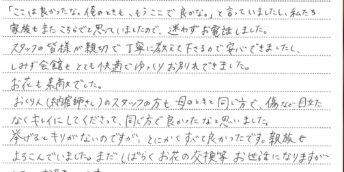 「ここは良かったな。俺のときも、もうここで良かな。」と言っていましたし、私たち
家族もまたこちらでと思っていましたので、迷わずお電話しました。
スタッフの皆様が親切で丁寧に教えて下さるので安心できましたし、
しみず会館もとても快適でゆっくりお別れできました。
お花も素敵でした。
おくりんぐ(納棺師さん)のスタッフの方も母のときと同じ方で、傷など目立た
なくキレイにしてくださって、同じ方で良かったなと思いました。
挙げるとキリがないのですが、とにかくすべて良かったです。親族も
よろこんでいました。まだしばらくお花の交換等お世話になりますが